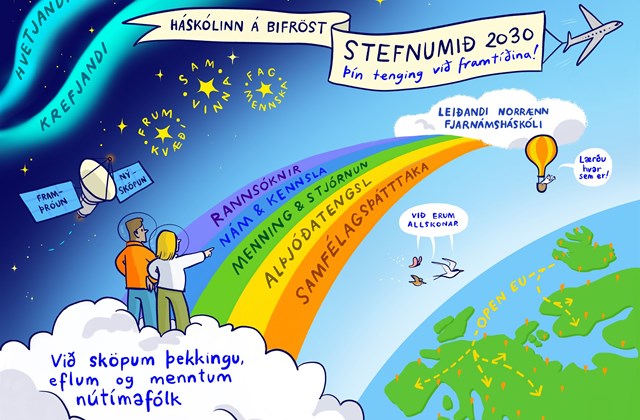 HVETJANDI
KREFJANDI
HÁSKÓLINN Á BIFRÖST
STEFNUMIÐ 2030
Þín tenging við framtíðina!
FRUM
KVÆÐI
SAM
VINNA
FAG
MENNSKA
FRAM-
ÞRÓUN
NÝ-
SKÖPUN
LEIÐANDI NORRÆNN
FJARNÁMSHÁSKÓLI
RANNSÓKNIR
NÁM & KENNSLA
MENNING & STJÓRNUN
ALÞJÓÐATENGSL
SAMFÉLAGSÞÁTTTAKA
Lærðu
hvar
sem er!
VIÐ ERUM
ALLSKONAR
OPEN EU
Við sköpum þekkingu,
eflum og menntum
nútímafólk